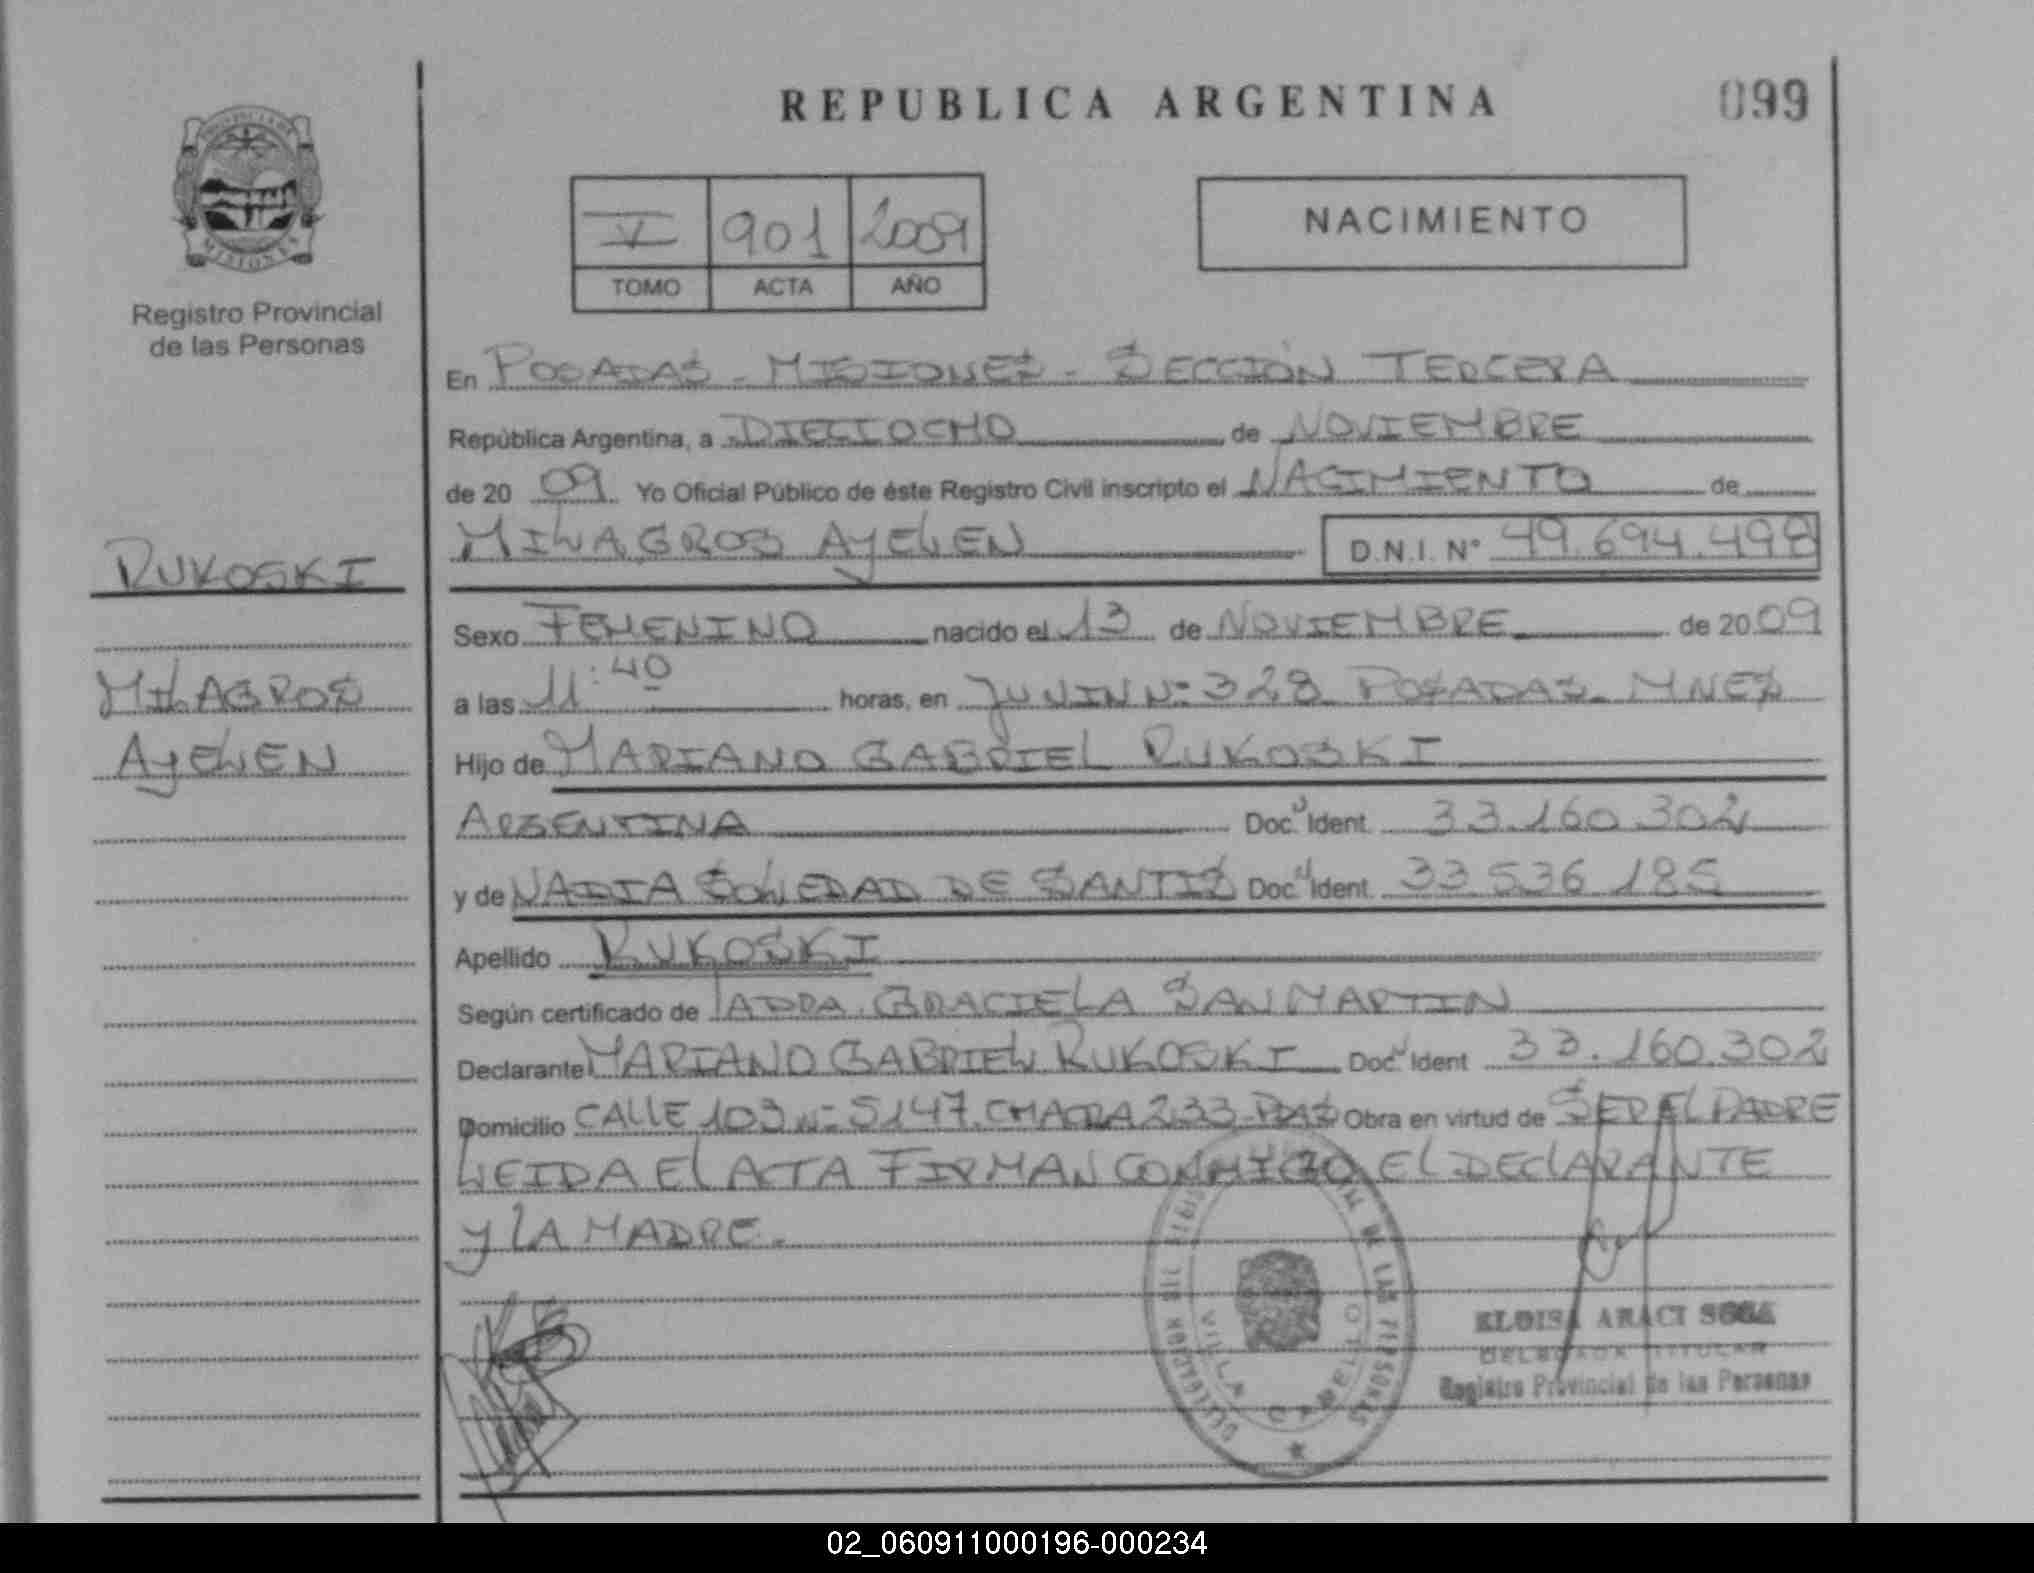 REPUBLICA ARGENTINA
099
PROVINCIA DE
MISIONES
Registro Provincial
de las Personas
V 901 2009
TOMO ACTA AÑO
NACIMIENTO
En POSADAS - MISIONES - SECCIÓN TERCERA
República Argentina, a DIECIOCHO de NOVIEMBRE
de 20 09 Yo Oficial Público de éste Registro Civil inscripto el NACIMIENTO de
MILAGROS AYELEN D.N.I. N° 49.694.498
RUKOSKI
MILAGROS
AYELEN
Sexo FEMENINO nacido el 13 de NOVIEMBRE de 20 09
a las 11:40 horas, en JUNIN Nº 328 POSADAS - MNES
Hijo de MARIANO GABRIEL RUKOSKI
ARGENTINA Doc. Ident. 33.160.302
y de NADIA SOLEDAD DE SANTIS Doc. Ident. 33 536 185
Apellido RUKOSKI
Según certificado de GRACIELA SAN MARTIN
Declarante MARIANO GABRIEL RUKOSKI Doc. Ident 33.160.302
Domicilio CALLE 103 Nº 5147. CHACRA 233 - PDAS Obra en virtud de SER EL PADRE
LEIDA EL ACTA FIRMAN CONMIGO EL DECLARANTE
Y LA MADRE.
DE LAS PERSONAS
VILLA CABELLO
ELOISA ARACI SOSA
DELEGADA TITULAR
Registro Provincial de las Personas
02_060911000196-000234